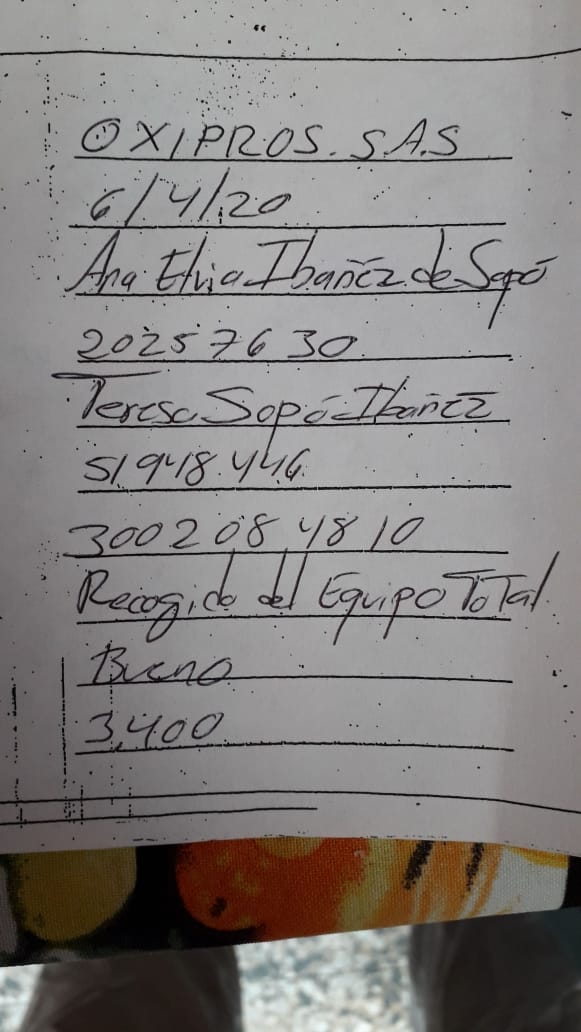 OXIPROS. S.A.S
6/4/20
Ana Elvia Ibañez de Sopó
20257630
Teresa Sopó Ibañez
51948.446
3002084810
Recogido del Equipo Total
Bueno
3,400